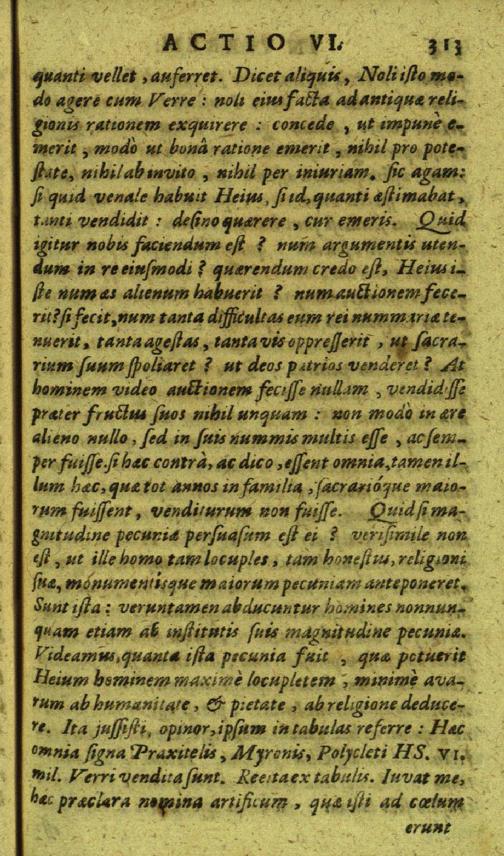 ACTIO VI. 313
quanti vellet, auferret. Dicet aliquis, Noli isto mo-
do agere cum Verre: noli eius facta ad antiquæ reli-
gionis rationem exquirere: concede, ut impunè e-
merit, modò ut bonâ ratione emerit, nihil pro pote-
state, nihil ab invito, nihil per iniuriam. sic agam:
si quid venale habuit Heius, si id, quanti æstimabat,
tanti vendidit: desino quærere, cur emeris. Quid
igitur nobis faciendum est? num argumentis uten-
dum in re eiusmodi? quærendum credo est, Heius i-
ste num æs alienum habuerit? num auctionem fece-
rit? si fecit, num tanta difficultas eum rei nummariæ te-
nuerit, tanta agestas, tanta vis oppresserit, ut sacra-
rium suum spoliaret? ut deos patrios venderet? At
hominem video auctionem fecisse nullam, vendidisse
præter fructus suos nihil unquam: non modò in ære
alieno nullo, sed in suis nummis multis esse, ac sem-
per fuisse. si hæc contrà, ac dico, essent omnia, tamen il-
lum hæc, quæ tot annos in familia, sacrarióque maio-
rum fuissent, venditurum non fuisse. Quid si ma-
gnitudine pecuniæ persuasum est ei? verisimile non
est, ut ille homo tam locuples, tam honestus, religioni
suæ, monumentisque maiorum pecuniam anteponeret.
Sunt ista: veruntamen abducuntur homines nonnun-
quam etiam ab institutis suis magnitudine pecuniæ.
Videamus, quanta ista pecunia fuit, quæ potuerit
Heium hominem maximè locupletem, minimè ava-
rum ab humanitate, & pietate, ab religione deduce-
re. Ita jussisti, opinor, ipsum in tabulas referre: Hæc
omnia signa Praxitelis, Myronis, Polycleti HS. VI.
mil. Verri vendita sunt. Recita ex tabulis. Iuvat me,
hæc præclara nomina artificum, quæ isti ad cœlum
erunt